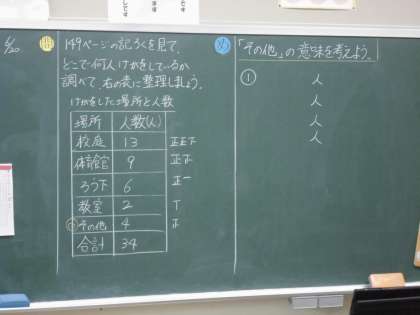 6/20
149ページの記ろくを見て、
どこで何人けがをしているか
調べて、右の表に整理しましょう。
けがをした場所と人数
場所 人数(人)
校庭 13 正正下
体育館 9 正正
ろう下 6 正一
教室 2 T
その他 4 正
合計 34
「その他」の意味を考えよう。
① 人
人
人
人